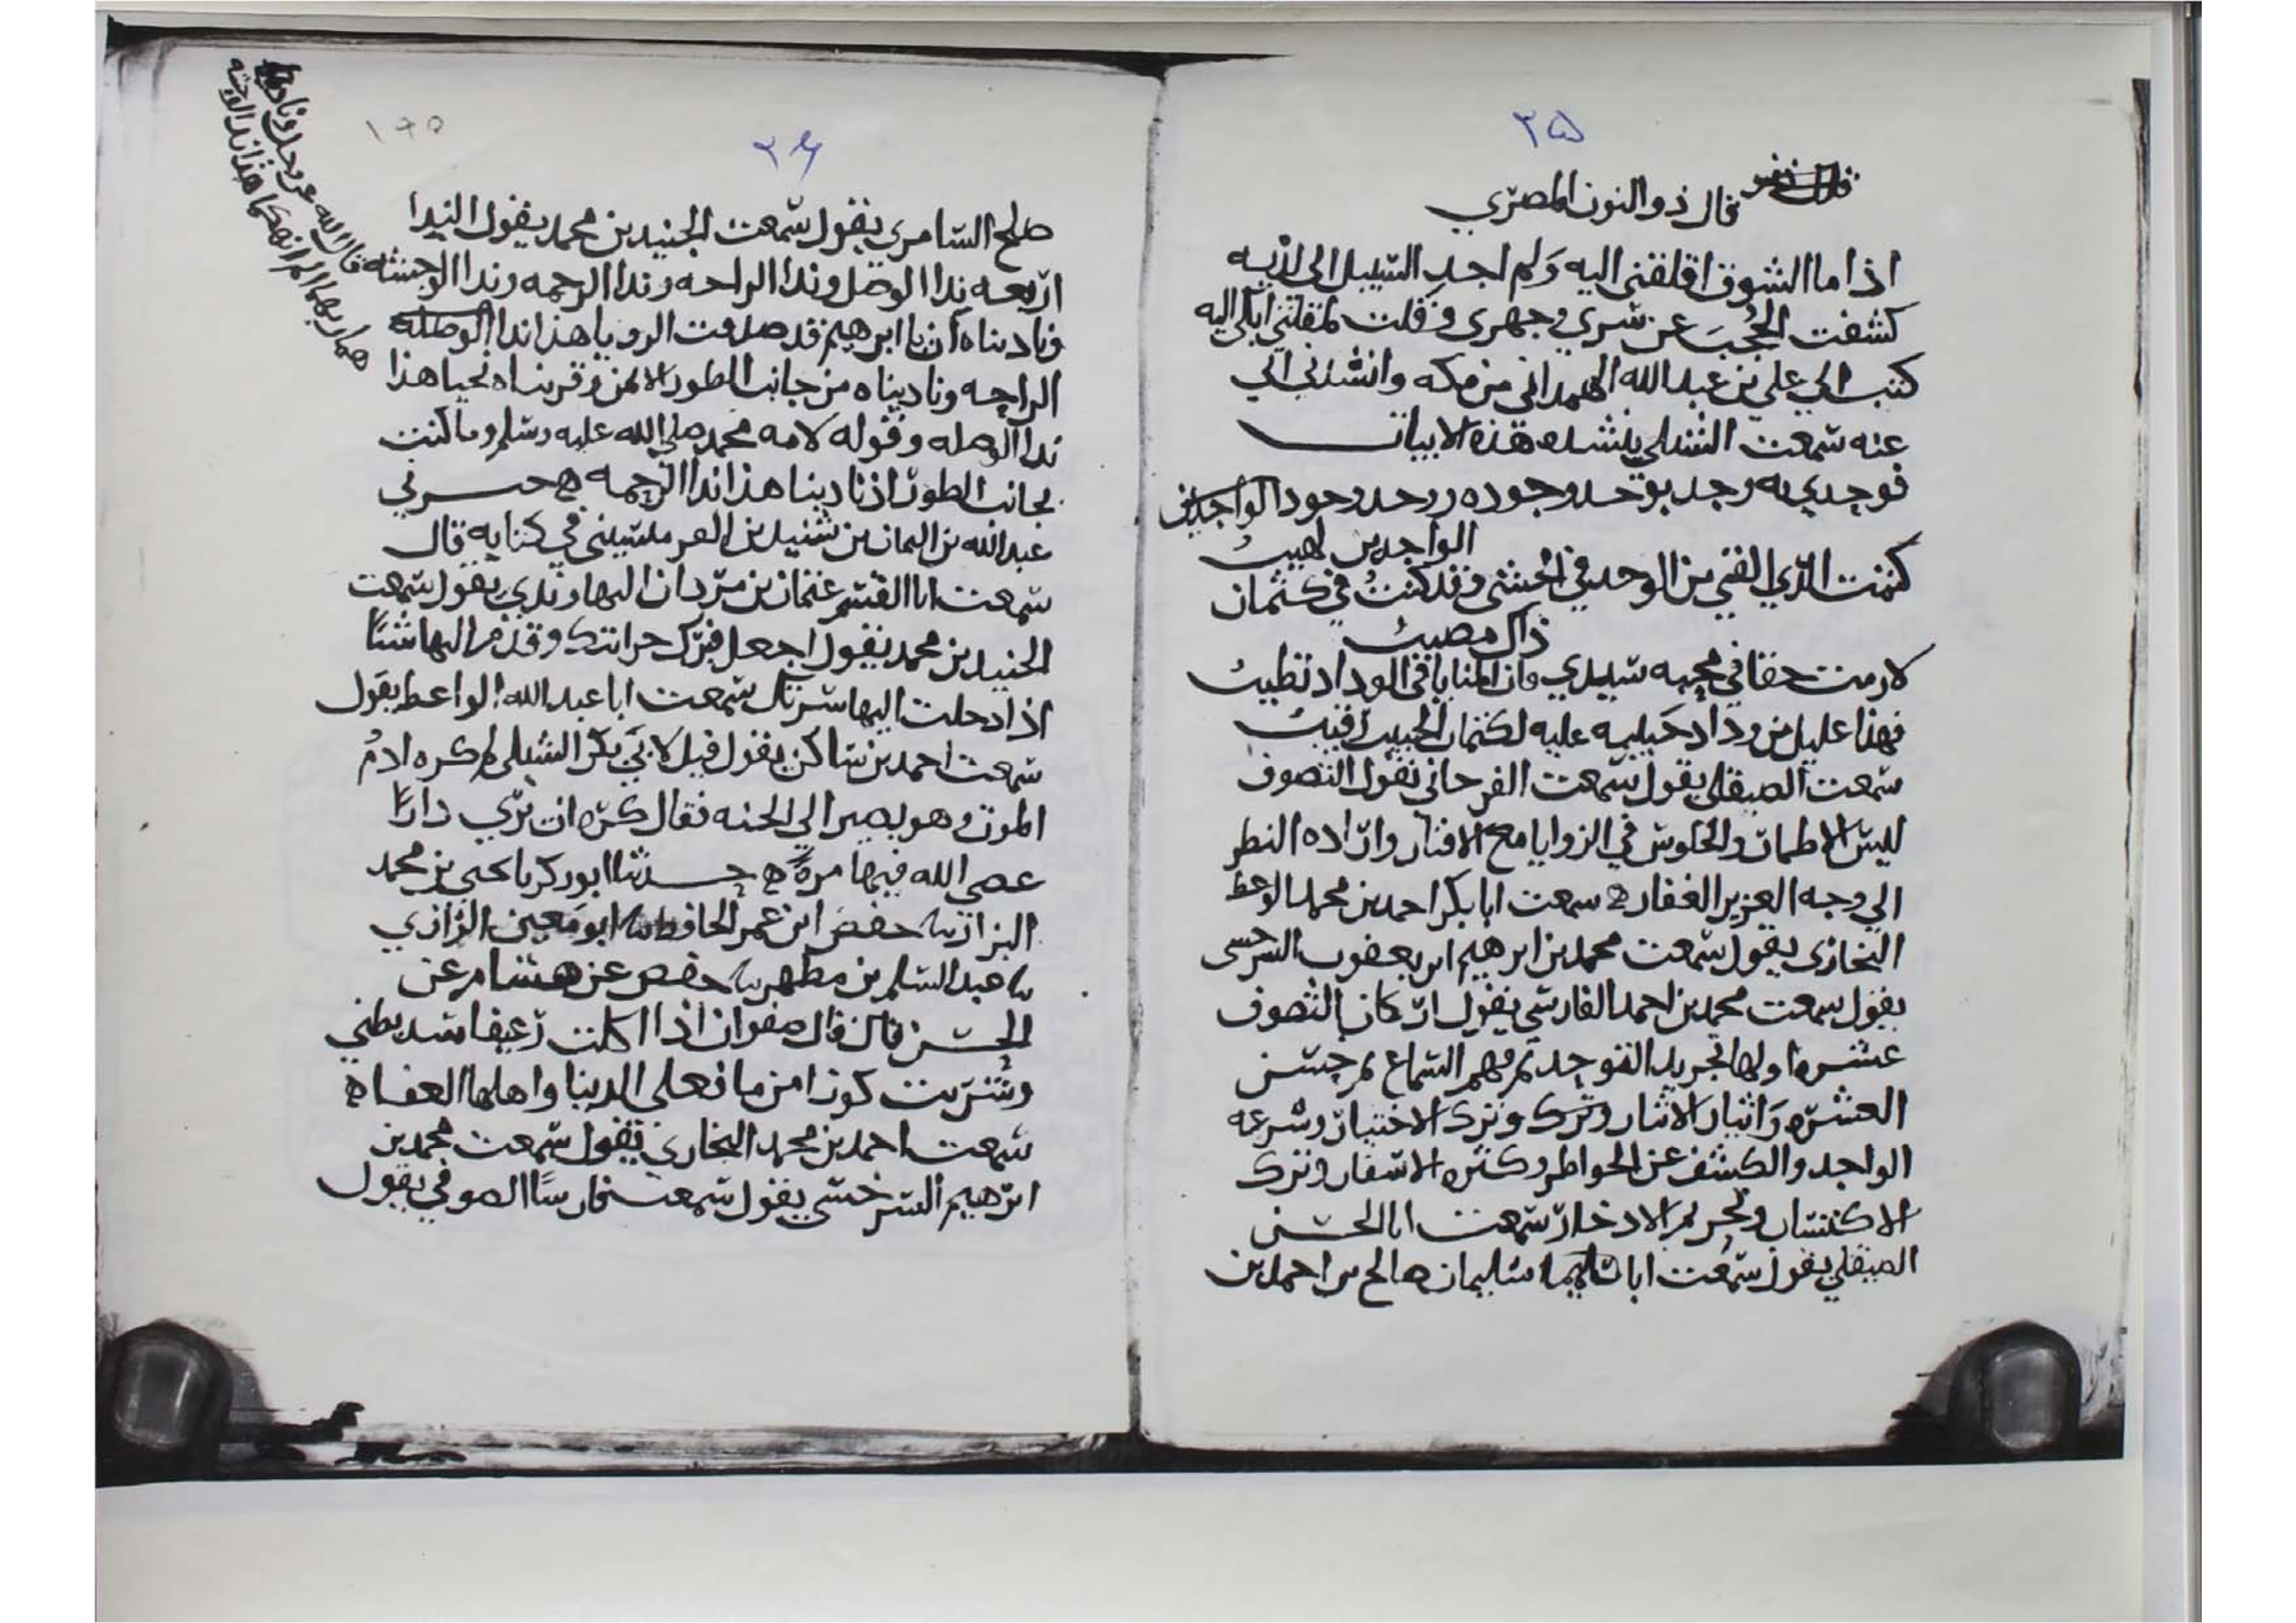 ٢٥
قال ذو النون المصري
اذا ما الشوق اقلقني اليه ولم اجد السبيل الى لديه
كشفت الحجب عن سري وجهري وقلت لمقلتي ابكي اليه
كتب الي علي بن عبد الله الهمداني من مكه وانشدني ابي
عنه سمعت الشبلي ينشد هذه الابيات
فوجدي به وجد بوجد وجوده ووجد وجود الواجدين
الواجدين لهيب
كتمت الذي القي من الوجد في الحشى وقد كنت في كتمان
ذاك مصيب
لازمت حقا في محبه سيدي وان المنايا في الوداد تطيب
فهذا عليل من وداد حبيبه عليه لكتمان الحبيب رقيب
سمعت الصيقلي يقول سمعت الفرحاني يقول التصوف
لبس الاطمار والجلوس في الزوايا مع الافتقار واراده النظر
الي وجه العزيز الغفار ه سمعت ابا بكر احمد بن محمد الوعظ
البخاري يقول سمعت محمد بن ابرهيم ابن يعقوب السرخسي
يقول سمعت محمد بن احمد الفارسي يقول اركان التصوف
عشره اولها تجريد التوحيد ثم فهم السماع ثم حسن
العشره وايثار الايثار وترك وترك الاختيار وسرعه
الواجد والكشف عن الخواطر وكثره الاسفار وترك
الاكتساب وتحريم الادخار سمعت ابا الحسن
الصيقلي يقول سمعت ابا سليمان صالح بن احمد بن
٢٦
١٩٥
صلح السامري يقول سمعت الجنيد بن محمد يقول الندا
اربعه ندا الوصل وندا الراحه وندا الرحمه وندا الوحشه
قال الله عز وجل وناداهما ربهما الم انهكما هذا ندا الوحشه
وناديناه ان يا ابرهيم قد صدقت الرويا هذا ندا الوصله
الراحه وناديناه من جانب الطور الايمن وقربناه نجيا هذا
ندا الوصله وقوله لامه محمد صلى الله عليه وسلم وما كنت
بجانب الطور اذ نادينا هذا ندا الرحمه ه اخبرني
عبد الله بن اليمان بن شنيد بن في كتابه قال
سمعت ابا القسم عثمان بن مردان النهاوندي يقول سمعت
الجنيد بن محمد يقول اجعل قبرك خزانتك وقدم اليها شيا
اذا دخلت اليها سرتك سمعت ابا عبد الله الواعظ يقول
سمعت احمد بن شاكر يقول قيل لابي بكر الشبلي لم كره ادم
الموت وهو يصير الي الجنه فقال كره ان يري دارا
عصى الله فيها مرة ه حدثنا ابو زكريا يحيى بن محمد
البزاز نا حفص ابن عمر الحافظ نا ابو معين الرازي
نا عبد السلم بن مطهر نا حفص عن هشام عن
الحسن قال قال صفوان اذا اكلت رغيفا سد بطني
وشربت كوزا من ما فعلى الدنيا واهلها العفاه
سمعت احمد بن محمد البخاري يقول سمعت محمد بن
ابرهيم السرخسي يقول سمعت فارسا الصوفي يقول